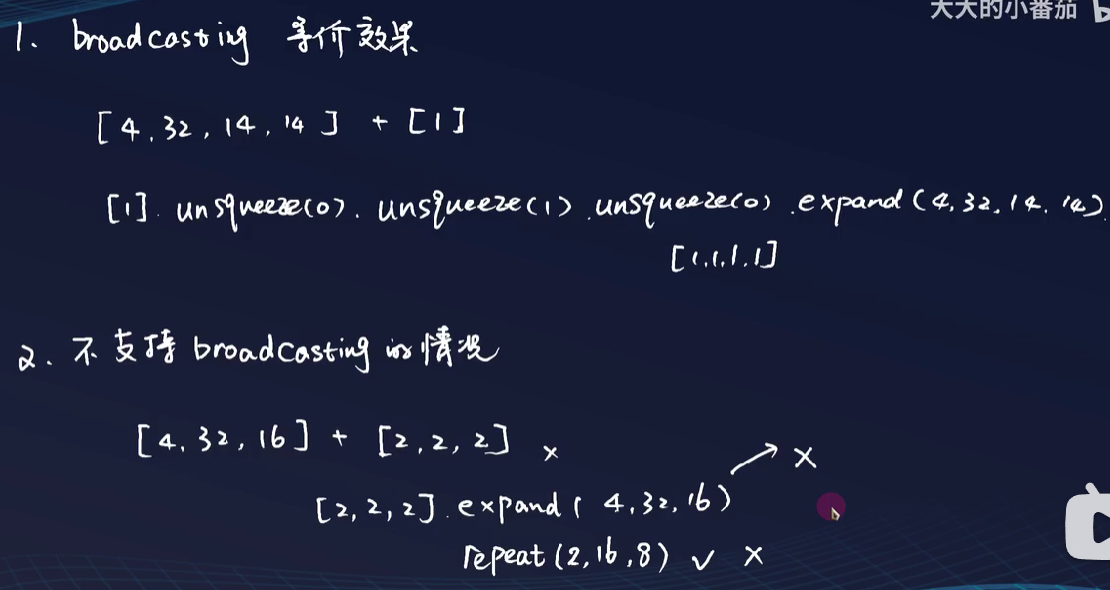 大大的小番茄
1. broadcasting 等价效果
[4,32,14,14] + [1]
[1].unsqueeze(0).unsqueeze(1).unsqueeze(0).expand(4,32,14,14)
[1,1,1,1]
2. 不支持broadcasting的情况
[4,32,16] + [2,2,2] ×
[2,2,2].expand(4,32,16) ↗ ×
repeat(2,16,8) √ ×